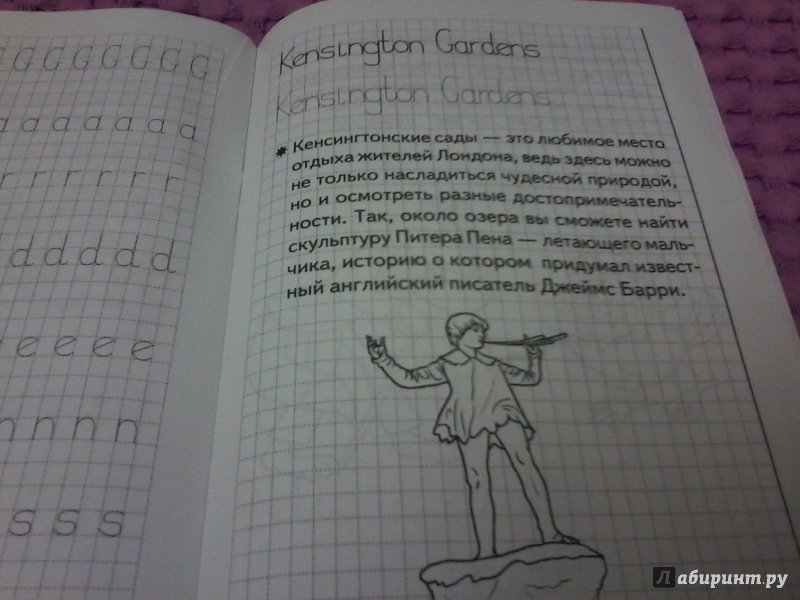 G G G G G G G G
a a a a a a a a
r r r r r r r
d d d d d d
e e e e e
n n n n n
s s s
Kensington Gardens
Kensington Gardens
* Кенсингтонские сады — это любимое место
отдыха жителей Лондона, ведь здесь можно
не только насладиться чудесной природой,
но и осмотреть разные достопримечатель-
ности. Так, около озера вы сможете найти
скульптуру Питера Пена — летающего маль-
чика, историю о котором придумал извест-
ный английский писатель Джеймс Барри.
Лабиринт.ру